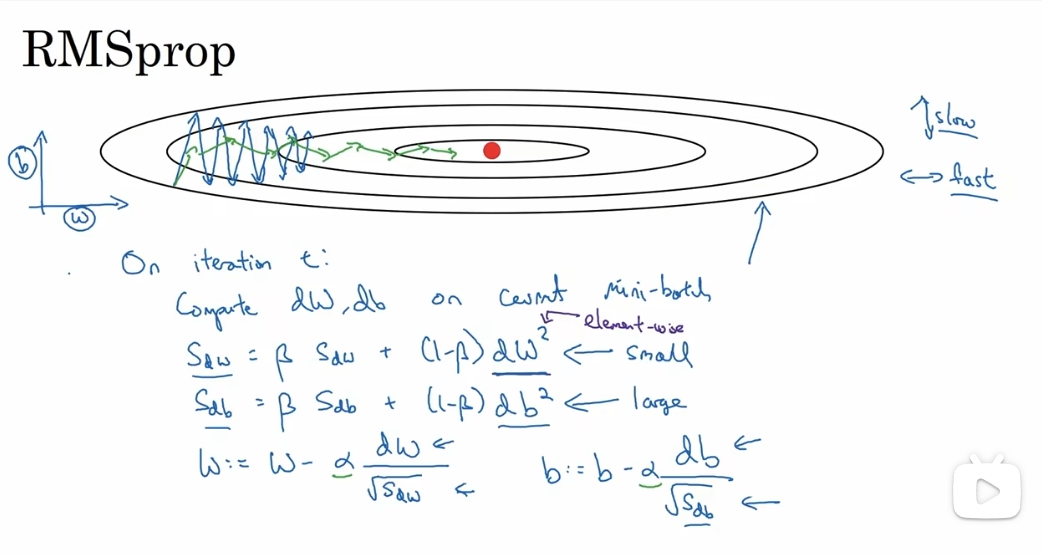 RMSprop
slow
fast
b
w
On iteration t:
Compute dW, db on current mini-batch
element-wise
S_dw = β S_dw + (1-β) dW² ← small
S_db = β S_db + (1-β) db² ← large
W := W - α dW/√S_dw ← ← b := b - α db/√S_db ← ←